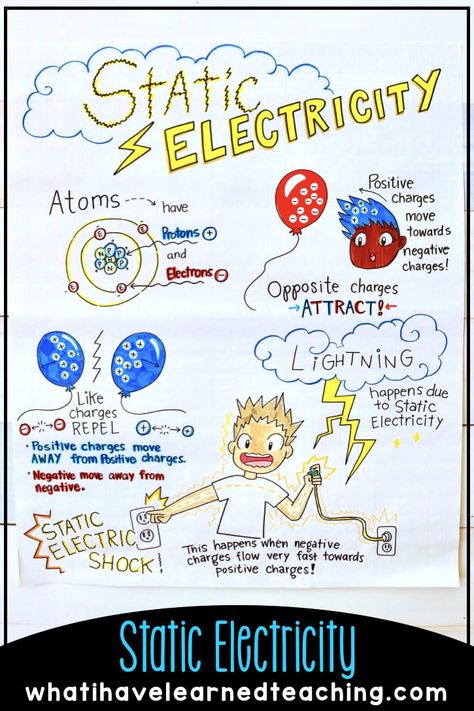 Static
ELECTRICITY
Atoms → have
Protons +
and
Electrons -
E
E
E
E
N P P
P N P N
Positive
charges
move
towards
negative
charges!
Opposite charges
→ATTRACT!←
Like
charges
REPEL
• Positive charges move
AWAY from Positive charges.
• Negative move away from
negative.
LIGHTNING
happens due
to Static
Electricity
STATIC
ELECTRIC
SHOCK!
This happens when negative
charges flow very fast towards
positive charges!
Static Electricity
whatihavelearnedteaching.com